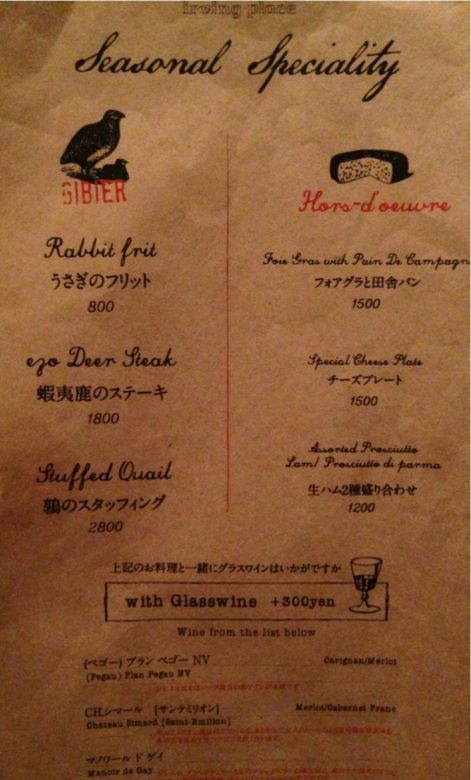 irving place
Seasonal Speciality
GIBIER
Rabbit frit
うさぎのフリット
800
ezo Deer Steak
蝦夷鹿のステーキ
1800
Stuffed Quail
鶉のスタッフィング
2800
Hors-d'oeuvre
Foie Gras with Pain De Campagn
フォアグラと田舎パン
1500
Special Cheese Plate
チーズプレート
1500
Assorted Prosciutto
Lam/ Prosciutto di parma
生ハム2種盛り合わせ
1200
上記のお料理と一緒にグラスワインはいかがですか
with Glasswine +300yen
Wine from the list below
(ペゴー) プラン ペゴー NV
Carignan/Merlot
(Pegau) Plan Pegau NV
CH.シマール [サンテミリオン]
Merlot/Cabernet Franc
Chateau Simard [Saint-Emilion]
マノワール ド ゲイ
Manoir de Gay